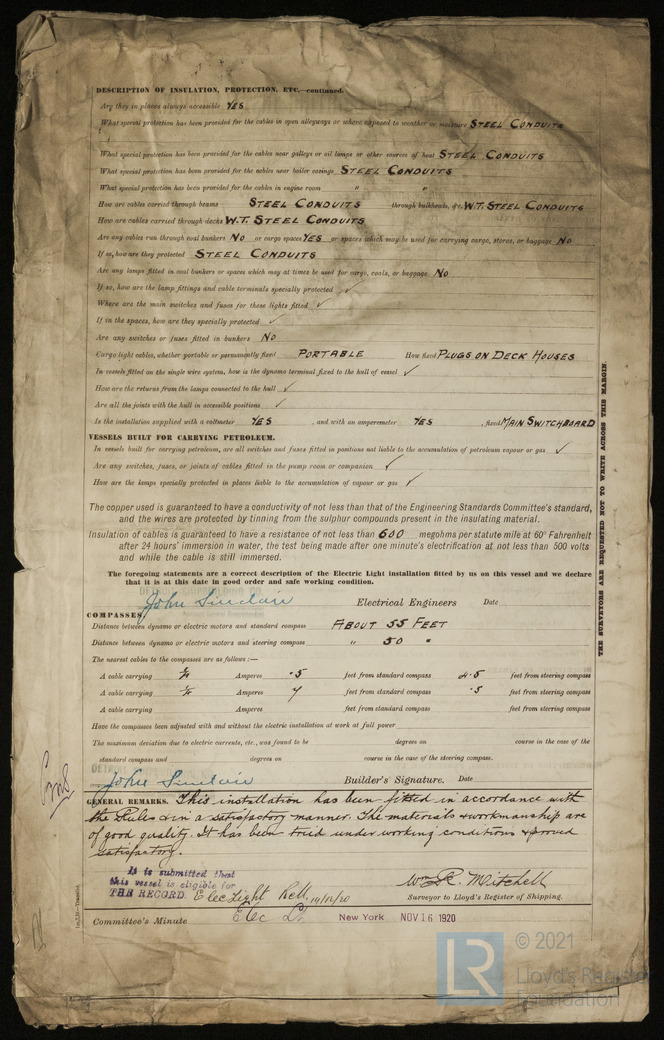 DESCRIPTION OF INSULATION, PROTECTION, ETC.—continued.
Are they in places always accessible YES
What special protection has been provided for the cables in open alleyways or where exposed to weather or moisture STEEL CONDUITS
What special protection has been provided for the cables near galleys or oil lamps or other sources of heat STEEL CONDUITS
What special protection has been provided for the cables near boiler casings STEEL CONDUITS
What special protection has been provided for the cables in engine room " "
How are cables carried through beams STEEL CONDUITS through bulkheads, &c. W.T. STEEL CONDUITS
How are cables carried through decks W.T. STEEL CONDUITS
Are any cables run through coal bunkers NO or cargo spaces YES or spaces which may be used for carrying cargo, stores, or baggage NO
If so, how are they protected STEEL CONDUITS
Are any lamps fitted in coal bunkers or spaces which may at times be used for cargo, coals, or baggage NO
If so, how are the lamp fittings and cable terminals specially protected ✓
Where are the main switches and fuses for these lights fitted ✓
If in the spaces, how are they specially protected ✓
Are any switches or fuses fitted in bunkers NO
Cargo light cables, whether portable or permanently fixed PORTABLE How fixed PLUGS ON DECK HOUSES
In vessels fitted on the single wire system, how is the dynamo terminal fixed to the hull of vessel ✓
How are the returns from the lamps connected to the hull ✓
Are all the joints with the hull in accessible positions ✓
Is the installation supplied with a voltmeter YES , and with an amperemeter YES , fixed MAIN SWITCHBOARD
VESSELS BUILT FOR CARRYING PETROLEUM.
In vessels built for carrying petroleum, are all switches and fuses fitted in positions not liable to the accumulation of petroleum vapour or gas ✓
Are any switches, fuses, or joints of cables fitted in the pump room or companion ✓
How are the lamps specially protected in places liable to the accumulation of vapour or gas ✓
The copper used is guaranteed to have a conductivity of not less than that of the Engineering Standards Committee's standard,
and the wires are protected by tinning from the sulphur compounds present in the insulating material.
Insulation of cables is guaranteed to have a resistance of not less than 600 megohms per statute mile at 60° Fahrenheit
after 24 hours' immersion in water, the test being made after one minute's electrification at not less than 500 volts
and while the cable is still immersed.
The foregoing statements are a correct description of the Electric Light installation fitted by us on this vessel and we declare
that it is at this date in good order and safe working condition.
John Sinclair Electrical Engineers Date
COMPASSES.
Distance between dynamo or electric motors and standard compass ABOUT 55 FEET
Distance between dynamo or electric motors and steering compass " 50 "
The nearest cables to the compasses are as follows:—
A cable carrying Amperes .5 feet from standard compass feet from steering compass
A cable carrying Amperes feet from standard compass .5 feet from steering compass
A cable carrying Amperes feet from standard compass feet from steering compass
Have the compasses been adjusted with and without the electric installation at work at full power
The maximum deviation due to electric currents, etc., was found to be degrees on course in the case of the
standard compass and degrees on course in the case of the steering compass.
John Sinclair Builder's Signature. Date
GENERAL REMARKS. This installation has been fitted in accordance with
the Rules & in a satisfactory manner. The materials & workmanship are
of good quality. It has been tried under working conditions & proved
satisfactory.
It is submitted that
this vessel is eligible for
THE RECORD. Elec Light
Wm R. Mitchell
Surveyor to Lloyd's Register of Shipping.
Committee's Minute Elec Lt New York NOV 16 1920
THE SURVEYORS ARE REQUESTED NOT TO WRITE ACROSS THIS MARGIN.
LR
© 2021
Lloyd's Register
Foundation